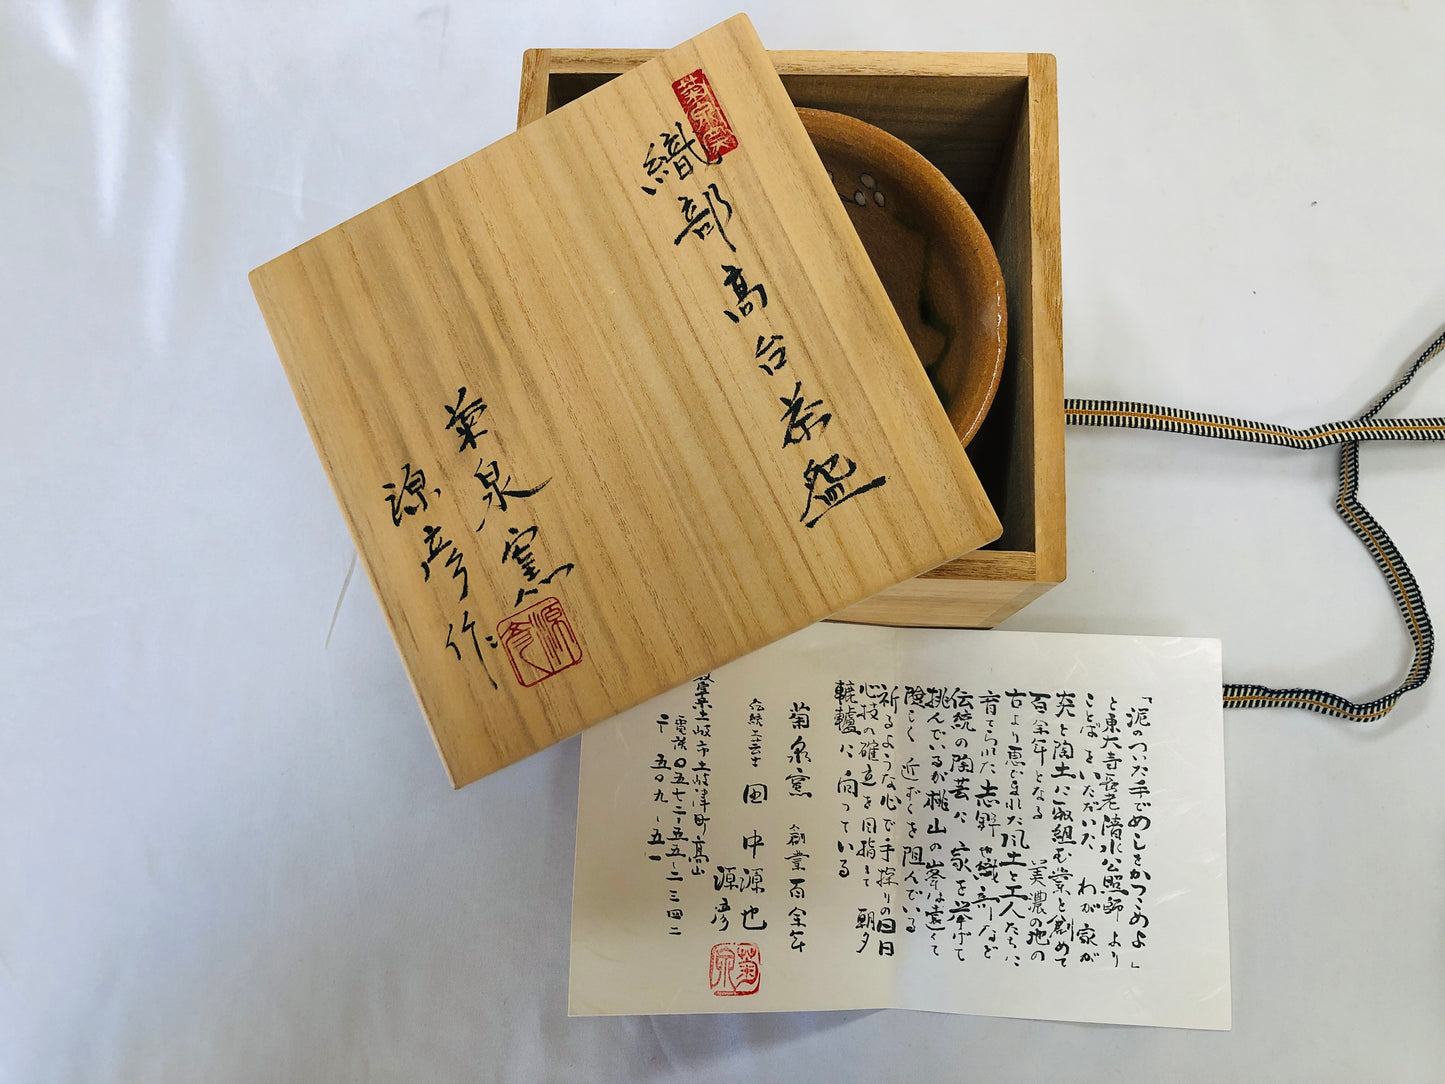 菊泉窯
織部高台茶盌
菊泉窯
源彦作
源彦
「泥のついた手でめしをかつこめよ」
と東大寺長老清水公照師より
ことばをいただいた わが家が
先と陶土に取組む業と創めて
百余年となる 美濃の地の
古より恵まれた風土と工人たちに
育てられた志野や織部など
伝統の陶芸に 家を挙げて
挑んでいるが桃山の峯は遠くて
険しく 近ずくを阻んでいる
祈るような心で手探りの日日
心技の確立を目指して 朝夕
轆轤に向っている
菊泉窯 創業百余年
伝統工芸士 田中源也
源彦
岐阜県土岐市土岐津町高山
電話〇五七二-五五-二三四二
〒五〇九-五一
菊泉